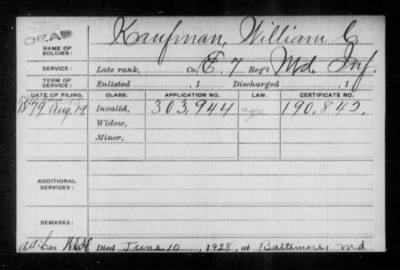 DEAD
NAME OF SOLDIER: Kaufman, William C.
SERVICE: Late rank, Co. E. 7 Reg't Md. Inf.
TERM OF SERVICE: Enlisted , 1 Discharged , 1
DATE OF FILING. CLASS. APPLICATION NO. LAW. CERTIFICATE NO.
1879 Aug. 19 Invalid, 303,944 190,842.
Widow,
Minor,
ADDITIONAL SERVICES:
REMARKS:
Died June 10, 1928, at Baltimore, Md